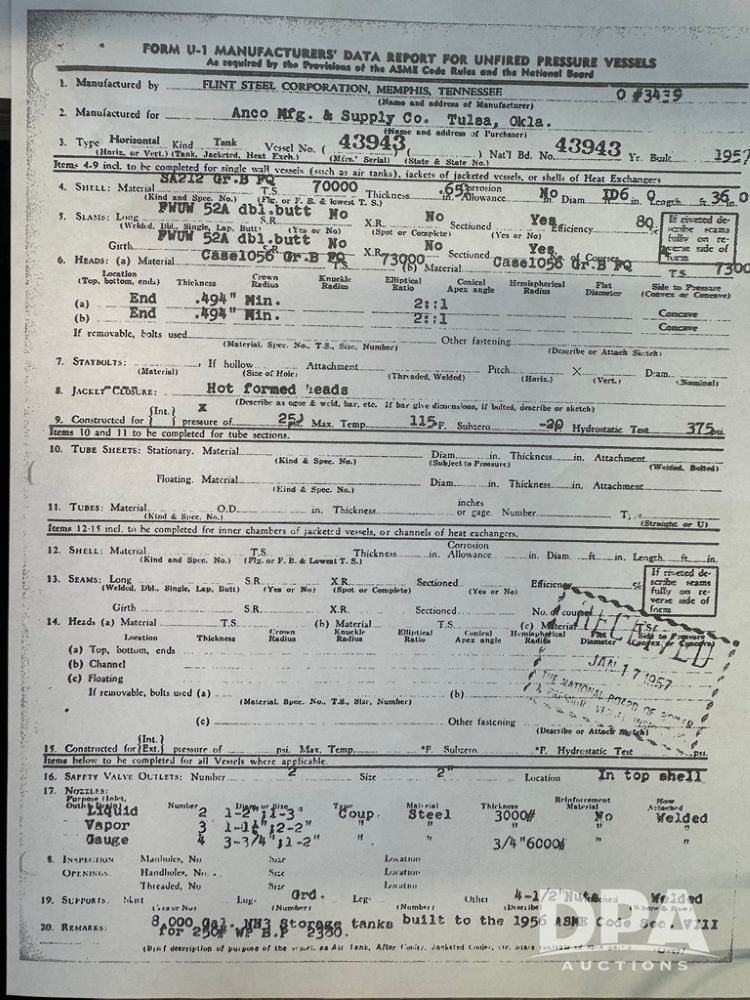 FORM U-1 MANUFACTURERS' DATA REPORT FOR UNFIRED PRESSURE VESSELS
As required by the Provisions of the ASME Code Rules and the National Board
1. Manufactured by FLINT STEEL CORPORATION, MEMPHIS, TENNESSEE O #3439
(Name and address of Manufacturer)
2. Manufactured for Anco Mfg. & Supply Co. Tulsa, Okla.
(Name and address of Purchaser)
3. Type Horizontal Kind Tank Vessel No. ( 43943 ) ( ) Nat'l Bd. No. 43943 Yr. Built 1957
(Horiz. or Vert.) (Tank, Jacketed, Heat Exch.) (Mfrs.' Serial) (State & State No.)
Items 4-9 incl. to be completed for single wall vessels (such as air tanks), jackets of jacketed vessels, or shells of Heat Exchangers
4. SHELL: Material SA212 Gr.B FQ T.S. 70000 Thickness Corrosion Allowance No Diam. ID6 0 Length 36 0
(Kind and Spec. No.) (Flg. or F. B. & lowest T. S.)
5. SEAMS: Long FWUW 52A dbl.butt No S.R. X.R. No Sectioned Yes Efficiency 80 %
(Welded, Dbl., Single, Lap, Butt) (Yes or No) (Spot or Complete) (Yes or No)
If riveted describe seams fully on reverse side of form
Girth FWUW 52A dbl.butt No S.R. X.R. No Sectioned Yes No. of Courses
6. HEADS: (a) Material Case1056 Gr.B FQ T.S. 73000 (b) Material Case1056 Gr.B FQ T.S. 7300
Location (Top, bottom, ends) Thickness Crown Radius Knuckle Radius Elliptical Ratio Conical Apex angle Hemispherical Radius Flat Diameter Side to Pressure (Convex or Concave)
(a) End .494" Min. 2::1 Concave
(b) End .494" Min. 2::1 Concave
If removable, bolts used Other fastening
(Material, Spec. No., T.S., Size, Number) (Describe or Attach Sketch)
7. STAYBOLTS: If hollow Attachment Pitch X Diam.
(Material) (Size of Hole) (Threaded, Welded) (Horiz.) (Vert.) (Nominal)
8. JACKET CLOSURE: Hot formed heads
(Describe as ogee & weld, bar, etc. If bar give dimensions, if bolted, describe or sketch)
9. Constructed for {Int.} X pressure of Max. Temp. 115 °F. Subzero -20 Hydrostatic Test 375 psi.
Items 10 and 11 to be completed for tube sections.
10. TUBE SHEETS: Stationary. Material Diam. in. Thickness in. Attachment
(Kind & Spec. No.) (Subject to Pressure) (Welded, Bolted)
Floating. Material Diam. in. Thickness in. Attachment
(Kind & Spec. No.)
11. TUBES: Material O.D. in. Thickness inches or gage. Number
(Kind & Spec. No.) (Straight or U)
Items 12-15 incl. to be completed for inner chambers of jacketed vessels, or channels of heat exchangers.
12. SHELL: Material T.S. Thickness in. Corrosion Allowance in. Diam. ft. in. Length ft. in.
(Kind and Spec. No.) (Flg. or F. B. & Lowest T. S.)
13. SEAMS: Long S.R. X.R. Sectioned Efficiency %
(Welded, Dbl., Single, Lap, Butt) (Yes or No) (Spot or Complete) (Yes or No)
If riveted describe seams fully on reverse side of form
Girth S.R. X.R. Sectioned No. of courses
14. Heads (a) Material T.S. (b) Material T.S. (c) Material T.S.
Location Thickness Crown Radius Knuckle Radius Elliptical Ratio Conical Apex angle Hemispherical Radius Flat Diameter Side to Pressure (Convex or Concave)
(a) Top, bottom, ends
(b) Channel
(c) Floating
RECEIVED
JAN 17 1957
THE NATIONAL BOARD OF BOILER
& PRESSURE VESSEL
If removable, bolts used (a) (b)
(Material, Spec. No., T.S., Size, Number)
(c) Other fastening
(Describe or Attach Sketch)
15. Constructed for {Int.} {Ext.} pressure of psi. Max. Temp. °F Subzero °F. Hydrostatic Test psi.
Items below to be completed for all Vessels where applicable.
16. SAFETY VALVE OUTLETS: Number 2 Size 2" Location In top shell
17. NOZZLES:
Purpose (Inlet, Outlet, Drain) Number Diam. or Size Type Material Thickness Reinforcement Material How Attached
Liquid 2 1-2";1-3" Coup. Steel 3000# No Welded
Vapor 3 " " " " "
Gauge 4 3-3/4";1-2" " " 3/4"6000# " "
8. INSPECTION OPENINGS: Manholes, No Size Location
Handholes, No. Size Location
Threaded, No Size Location
19. SUPPORTS: Skirt Lugs Grd. Legs Other Attached Welded
(Yes or No) (Number) (Number) (Describe)
20. REMARKS: 8,000 Gal. NH3 Storage tanks built to the 1956 ASME Code Sec. VIII
for 250# WP B.P 2300.
(Brief description of purpose of the vessel, as Air Tank, After Cooler, Jacketed Cooker, etc.
DPA
AUCTIONS